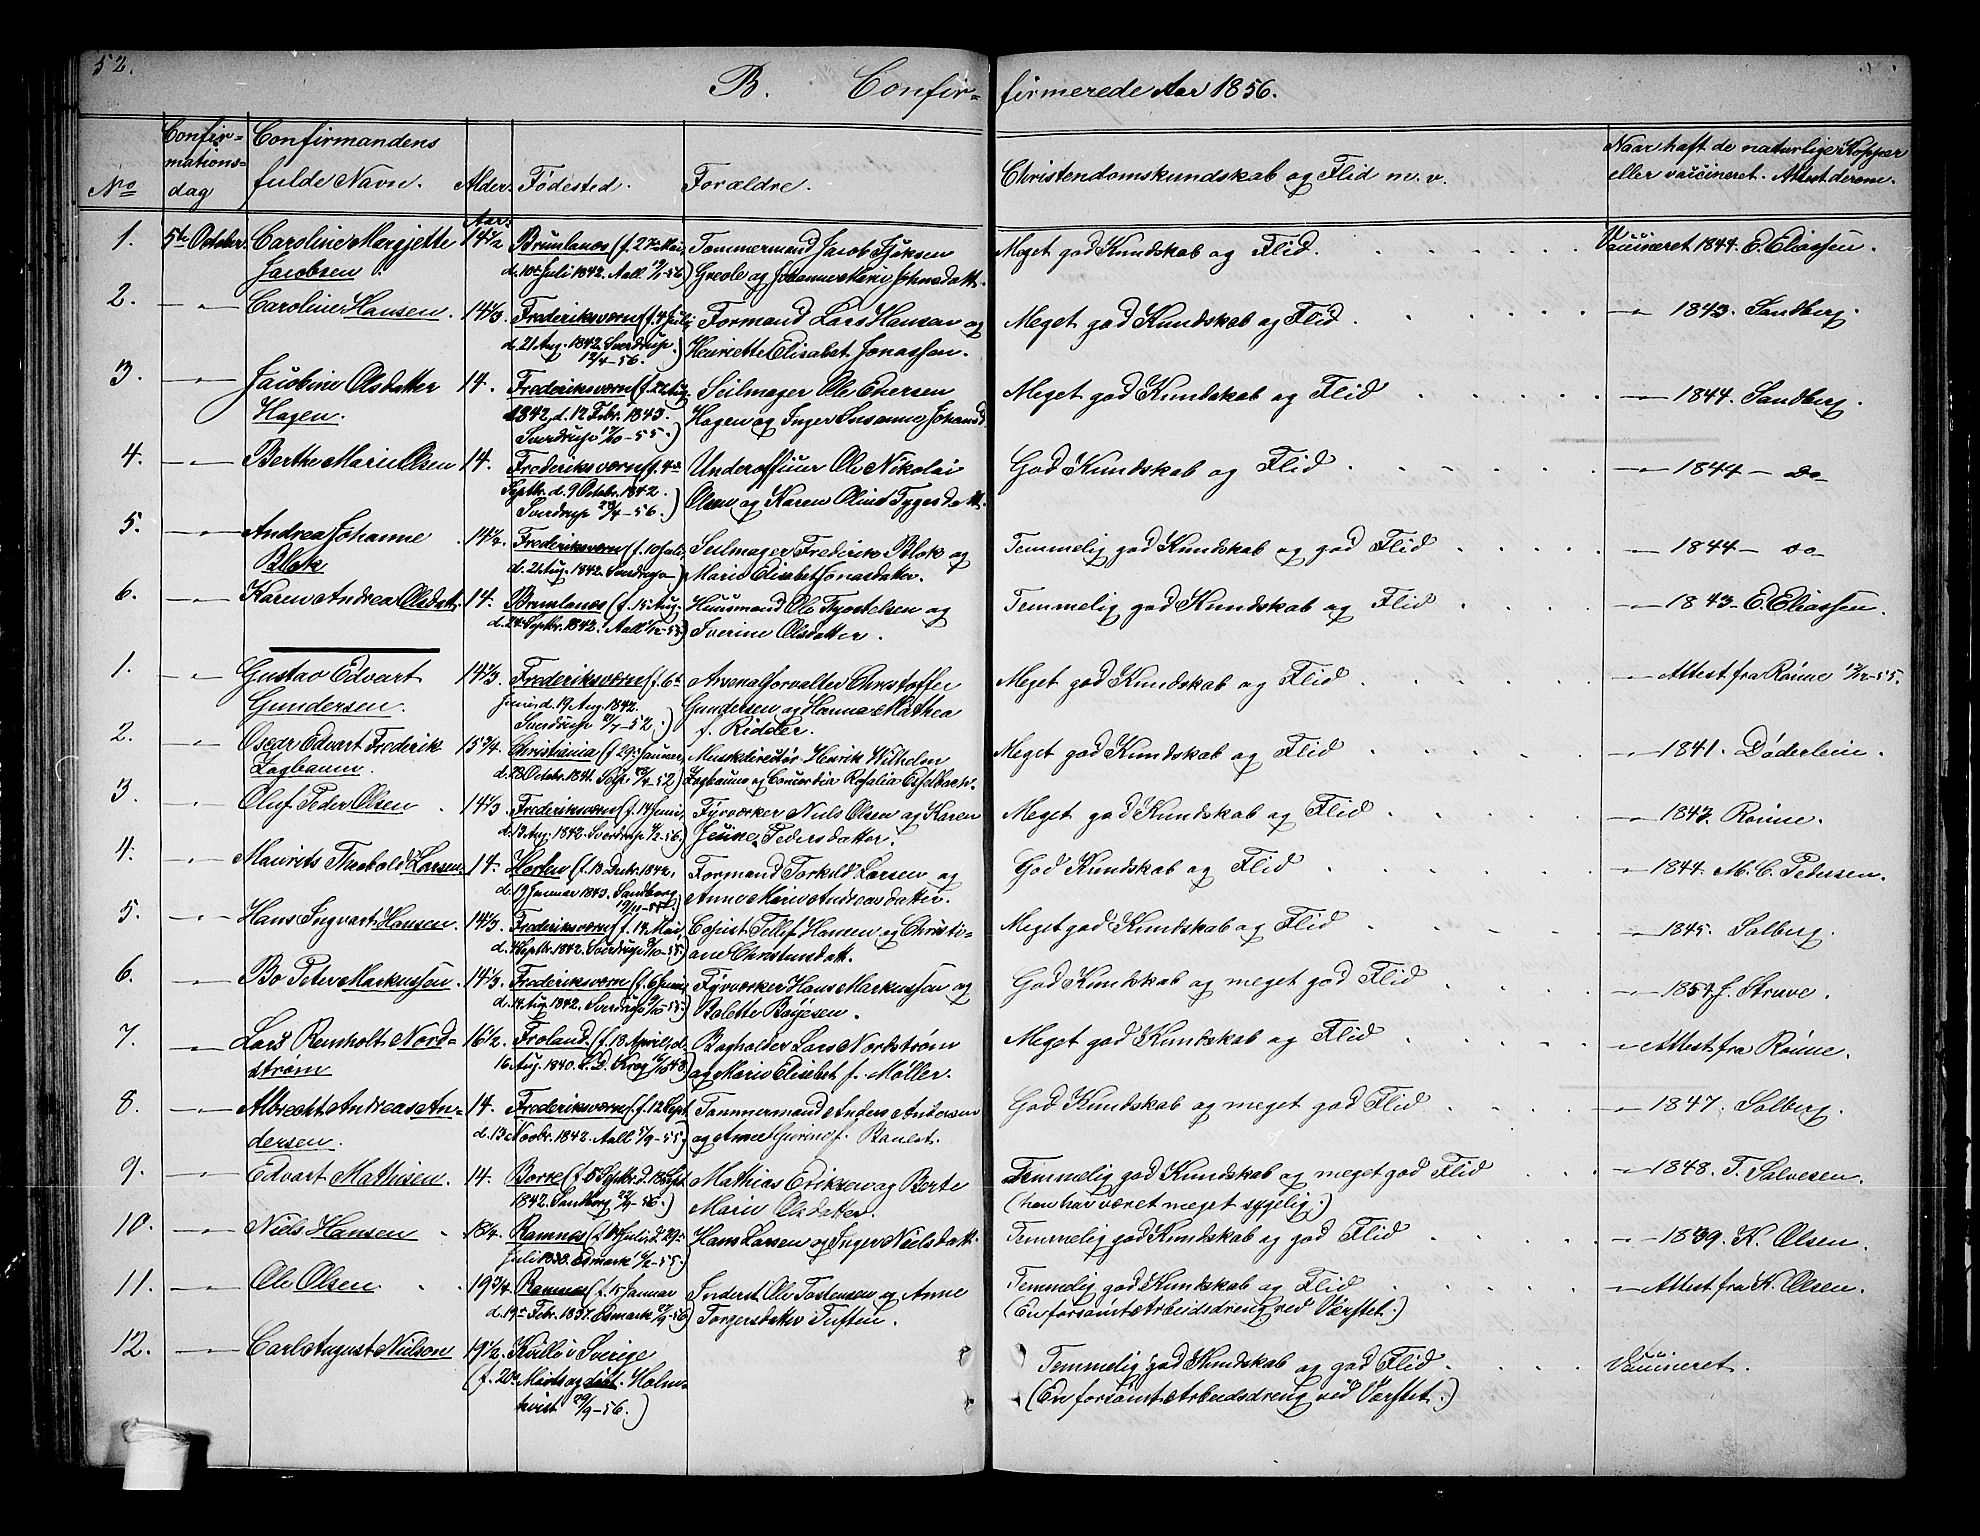 52.
B. Confir- firmerede Aar 1856.
No
Confir-
mations-
dag
Confirmandens
fulde Navn.
Alder.
Fødested.
Forældre.
Christendomskundskab og Flid m. v.
Naar haft de naturlige Kopper
eller vaccineret. Attest derom.
Aar.
1. 5te October. Caroline Margjette 14 1/2 Brunlanes (f. 27de Mai, Tømmermand Jacob Meget god Kundskab og Flid. Vaccineret 1844. E. Eliassen.
Jacobsen d. 10de Juli 1842. Aall 56) og Johanne Marie Johnsdatt.
2. —"— Caroline Hansen. 14 1/3. Frederiksværn (f. 4 Juli, Formand Lars Hansen og Meget god Kundskab og Flid. —"— 1843. Sandberg.
d. 21 Aug. 1842. Sverdrup Henriette Elisabet Jonassen.
12/4-56.)
3. —"— Jacobine Olsdatter 14. Frederiksværn (f. 22 Aug. Seilmager Ole Edersen Meget god Kundskab og Flid —"— 1844. Sandberg.
Hagen. 1842, d. 12 Febr. 1843. Hagen og Inger Susanne Johansd.
Sverdrup 17/10-55.)
4. —"— Berthe Marie Olsen 14. Frederiksværn (f. 4de Underofficeer Ole Nikolai God Kundskab og Flid —"— 1844 — do
Septbr. d. 9 Octobr. 1842. Olsen og Karen Oline Tygesdatt.
Sverdrup 29/4-56.)
5. —"— Andrea Johanne 14 1/4. Frederiksværn (f. 10 Juli, Seilmager Frederik Blok og Temmelig god Kundskab og god Flid —"— 1844 — do
Blok d. 21 Aug. 1842. Sverdrup —) Marie Elisabet Jonasdatter.
6. —"— Karen Andrea Olsdatt. 14. Brunlanes (f. 15 Aug. Huusmand Ole Tjostelsen og Temmelig god Kundskab og Flid —"— 1843. E. Eliassen.
d. 24 Septbr. 1842. Aall 55) Iverine Olsdatter.
1. —"— Gustav Edvart 14 1/3. Frederiksværn (f. 6te Arvenalforvalter Christoffer Meget god Kundskab og Flid —"— Attest fra Rønne 13/12-55.
Gundersen. Juni, d. 19 Aug. 1842. Gundersen og Hanna Mathea
Sverdrup 52.) f. Ridder.
2. —"— Oscar Edvart Frederik 15 3/4. Christiania (f. 29de Januar, Musikdirectør Henrik Wilhelm Meget god Kundskab og Flid —"— 1841. Døderlein.
Zogbaum. d. 28 Octobr. 1841. 52) Zogbaum og Concordia Rosalia
3. —"— Oluf Peder Olsen 14 1/3. Frederiksværn (f. 14 Juni, Fyrværker Niels Olsen og Karen Meget god Kundskab og Flid —"— 1843. Rønne.
d. 13 Aug. 1842. Sverdrup 56) Jenine Pedersdatter.
4. —"— Maurits Theobold Larsen 14. Horten (f. 13 Decbr. 1842, Formand Torkild Larsen og God Kundskab og Flid —"— 1844. M. C. Pedersen.
d. 19 Januar 1843. Sandberg Anne Marie Andreasdatter.
19/11-55.)
5. —"— Hans Ingvart Hansen. 14 1/3. Frederiksværn (f. 14 Mai, Copist Tellef Hansen og Christi- Meget god Kundskab og Flid —"— 1845. Solberg.
d. 4 Septbr. 1842. Sverdrup 9/10-55) ane Christensdatt.
6. —"— Bo Peter Markussen. 14 1/3. Frederiksværn (f. 6 Juni, Fyrværker Hans Markussen og God Kundskab og meget god Flid —"— 1854. J. Struve.
d. 14 Aug. 1842. Sverdrup 9/10-55.) Bolette Bøyesen.
7. —"— Lars Renholt Nord- 16 1/2. Froland (f. 13 April, d. Bogholder Lars Nordstrøm Meget god Kundskab og Flid —"— Attest fra Rønne.
strøm 16 Aug. 1840. L. D. Krog og Marie Elisebet f. Møller.
8. —"— Albrecht Andreas An- 14. Frederiksværn (f. 12 Sept. Tømmermand Anders Andersen God Kundskab og meget god Flid —"— 1847. Solberg.
dersen. d. 13 Novbr. 1842. Aall 5/9-55.) og Anne Gurine f.
9. —"— Edvart Mathisen. 14. Borre (f. 5 Septbr. d. 18 Sept. Mathias Eriksen og Berte Temmelig god Kundskab og meget god Flid —"— 1848. T. Salvesen.
1842. Sandberg 56.) Marie Olsdatter. (han har været meget sygelig.)
10. —"— Niels Hansen 18 1/4. Ramnes (f. Juli, d. 29de Hans Larsen og Inger Nielsdatt. Temmelig god Kundskab og god Flid —"— 1839. K. Olsen.
Juli 1838. Esmark 55.)
11. —"— Ole Olsen 19 3/4. Ramnes (f. 15 Januar Inderst Ole Tostensen og Anne Temmelig god Kundskab og Flid —"— Attest fra K. Olsen.
d. 19de Febr. 1837. Esmark 56) Torgersdatter Tuften. (En forsømt Arbeidsdreng ved Værftet.)
12. —"— Carl August Nielson 19 1/2. Kville i Sverige Temmelig god Kundskab og god Flid Vaccineret.
(f. 20de Marts og døbt. Holm- (En forsømt Arbeidsdreng ved Værftet.)
kvist 29/9-56.)